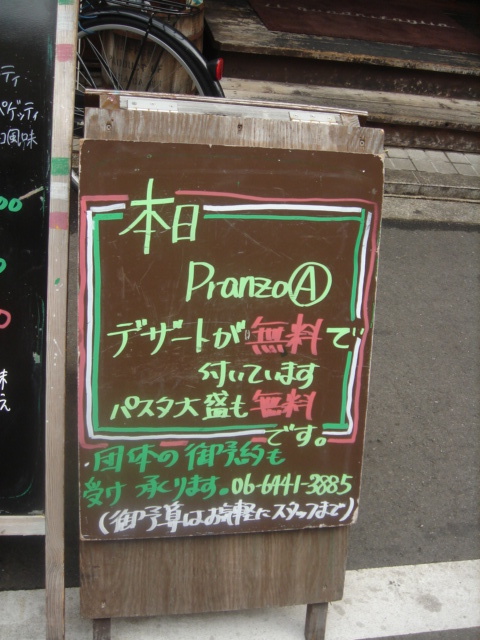 本日
Pranzo Ⓐ
デザートが無料で
付いています
パスタ大盛も無料
です。
団体の御予約も
受け承ります。06-6441-3885
(御予算はお気軽にスタッフまで)
ティ
パゲッティ
風味
00
0
0
味
え